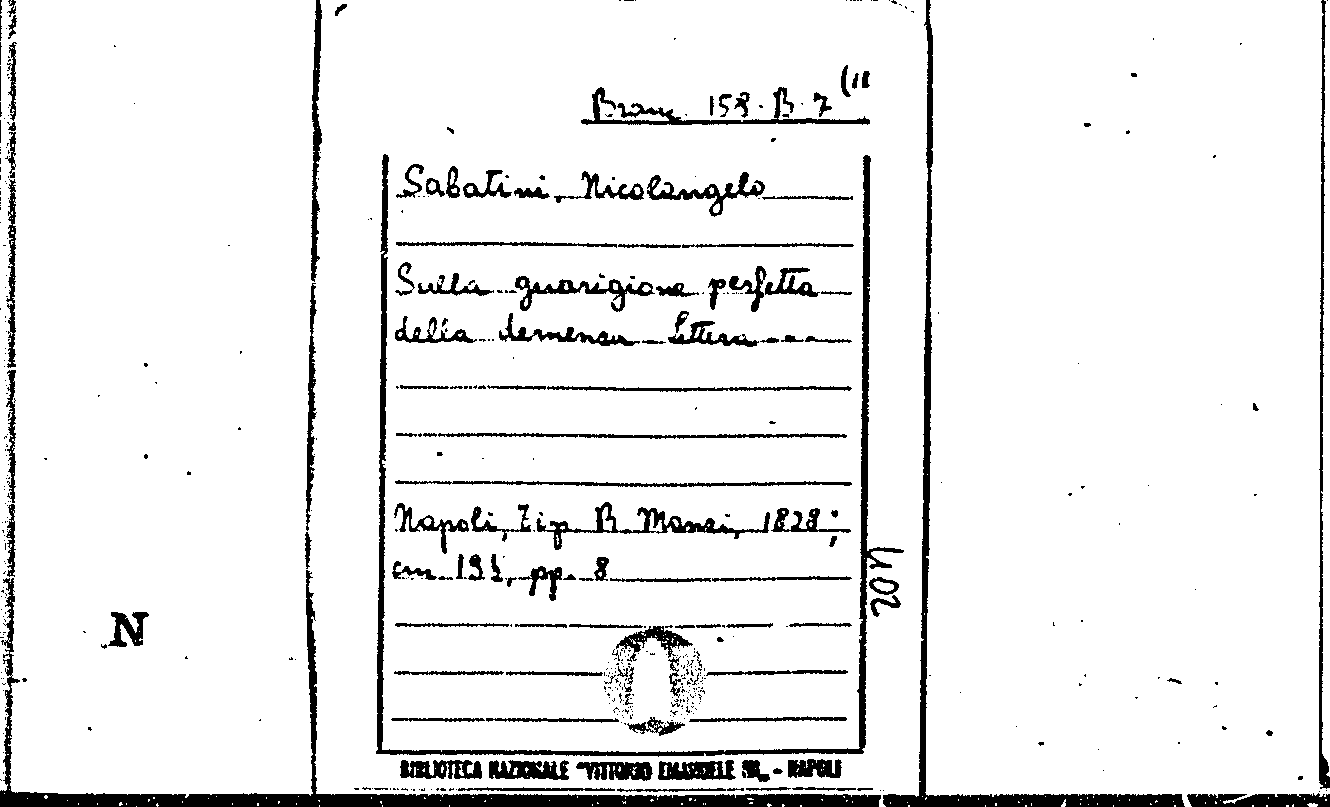 Branc. 158. B. 7 (11
Sabatini, Nicolangelo
Sulla guarigione perfetta
della demenza Lettera ---
Napoli, Tip. R. Manzi, 1828;
cm. 19½, pp. 8
402
N
BIBLIOTECA NAZIONALE "VITTORIO EMANUELE III„ - NAPOLI